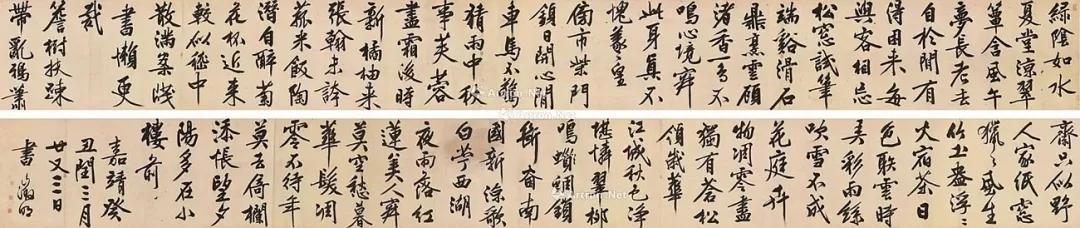 綠陰如水
夏堂涼翠
簟含風午
夢長老去
自於閒有
得困來每
與客相忘
松窗試筆
端谿滑石
鼎烹雲顧
渚香一鳥不
鳴心境寂
此身真不
愧羲皇
倚市柴門
鎖日開心閒
車馬不驚
猜雨中秋
事芙蓉
盡霜後時
新橘柚來
張翰未誇
菰米飯陶
潛自醉菊
花杯近來
較似嵇中
散滿案牋
書懶更
裁
簷樹扶疎
帶亂鴉蕭
齋只似野
人家紙窗
獵獵風生
竹土盎浮浮
火宿茶日
色 雲時
弄彩雨絲
吹雪不成
花庭卉
物凋零盡
獨有蒼松
領歲華
江城秋色淨
堪憐翠柳
鳴蜩鎖
斷煙南
國新涼歌
白苧西湖
夜雨落紅
蓮美人寂
莫空愁暮
華髮凋
零不待年
莫去倚欄
添悵望夕
陽多在小
樓前
嘉靖癸
丑閏三月
廿又二日
書 徵明
Artron.Net